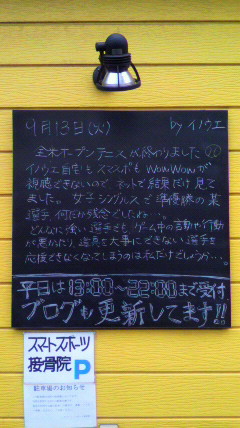 9月13日(火) by イノウエ
全米オープンテニスが終わりました
イノウエ自宅もスマスポもWOWOWが
視聴できないので、ネットで結果だけ見て
ました。女子シングルスで準優勝の某
選手、何だか残念でしたね…。
どんなに強い選手でも、ゲーム中の言動や行動
が悪かったり、道具を大事にできない選手を
応援できなくなってしまうのは私だけでしょうか…。
平日は13:00～22:00まで受付
ブログも更新してます!!
スマートスポーツ
接骨院 P
駐車場のお知らせ